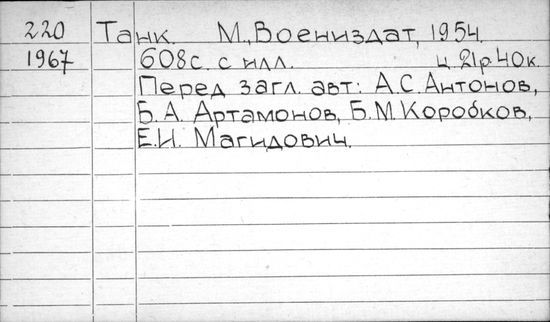 220 Танк. М., Воениздат, 1954.
1967 608с. с илл. ц. 21р. 40к.
Перед загл. авт: А.С. Антонов,
Б.А. Артамонов, Б.М. Коробков,
Е.И. Магидович.